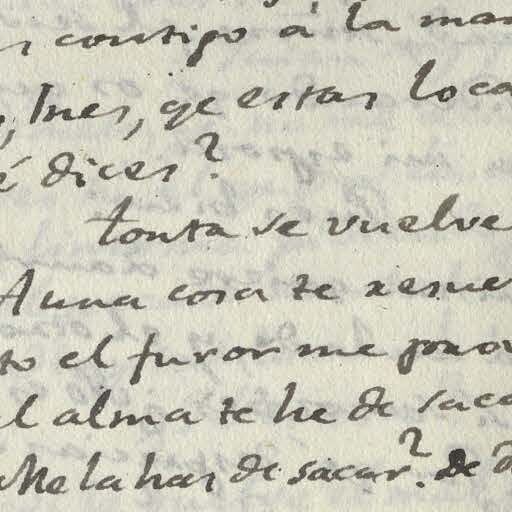 contigo à la man
Ines, qe estas loca
é dices?
tonta se vuelve
A una cosa te resuel
to el furor me provo
el alma te he de saca
Me la has de sacar? de